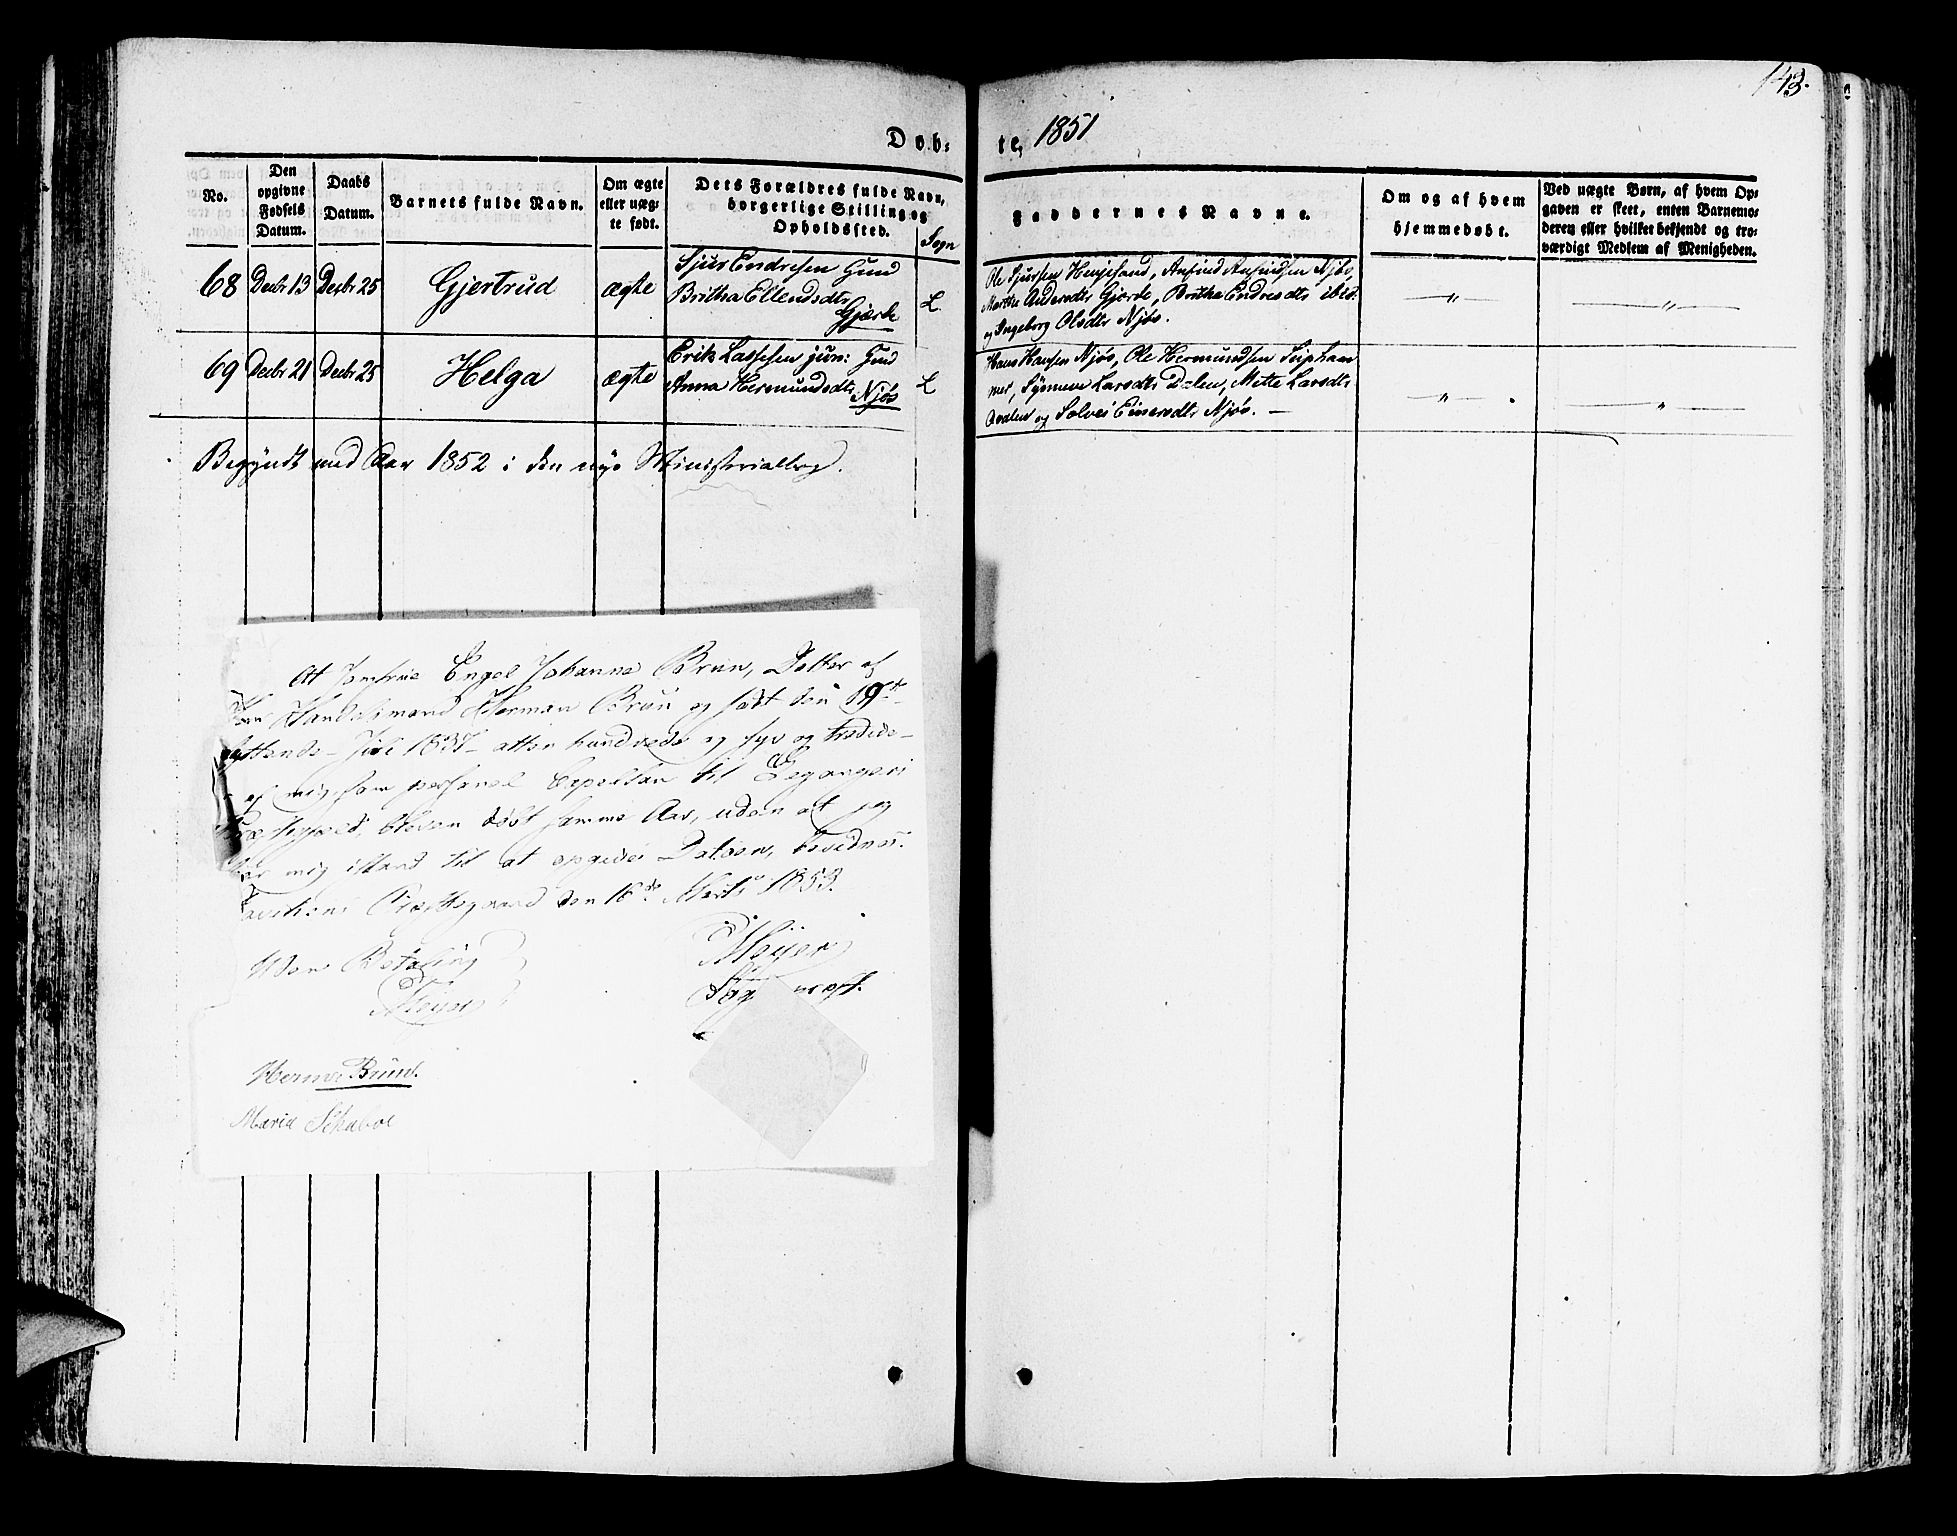 143.
Døb-
te, 1851
No.
Den
opgivne
Fødsels
Datum.
Daabs
Datum.
Barnets fulde Navn.
Om ægte
eller uæg-
te født.
Dets Forældres fulde Navn,
borgerlige Stilling og
Opholdssted.
Sogn
Faddernes Navne.
Om og af hvem
hjemmedøbt.
Ved uægte Børn, af hvem Op-
gaven er skeet, enten Barnemo-
deren eller hvilket bekjendt og tro-
værdigt Medlem af Menigheden.
68 Decbr 13 Decbr 25 Gjertrud ægte
Sjur Endresen Gmd
Britha Ellendsdtr
Gjærde
L.
Ole Sjursen Henjesand, Anfind Anfindsen Njøs,
Marthe Andersdtr Gjerde, Britha Endresdtr ibid.
og Ingeborg Olsdtr Njøs.
— " — — " —
69 Decbr 21 Decbr 25 Helga ægte
Erik Lassesen jun: Gmd
Anna Hermundsdtr
Njøs
L
Hans Hansen Njøs, Ole Hermundsen Supham
mer, Synneve Larsdtr Dalen, Mette Larsdtr
og Solvei Einersdtr Njøs. —
— " — — " —
Begyndt med Aar 1852 i den nye Ministerialbog.
At Jomfrue Engel Johanna Brun, Datter af
Handelsmand Herman Brun og født den 19de
nittende Juli 1837 atten hundrede og syv og tredive
af mig som personel Capellan til Leganger
Præstegjeld, bleven døbt samme Aar, uden at jeg
seer mig istand til at opgive Datoen, bevidnes.
Præstegaard den 16de Marts 1853.
Uden Betaling
Meyer
Meyer
Sogneprest.
Herman Brun.
Maria Schaboe